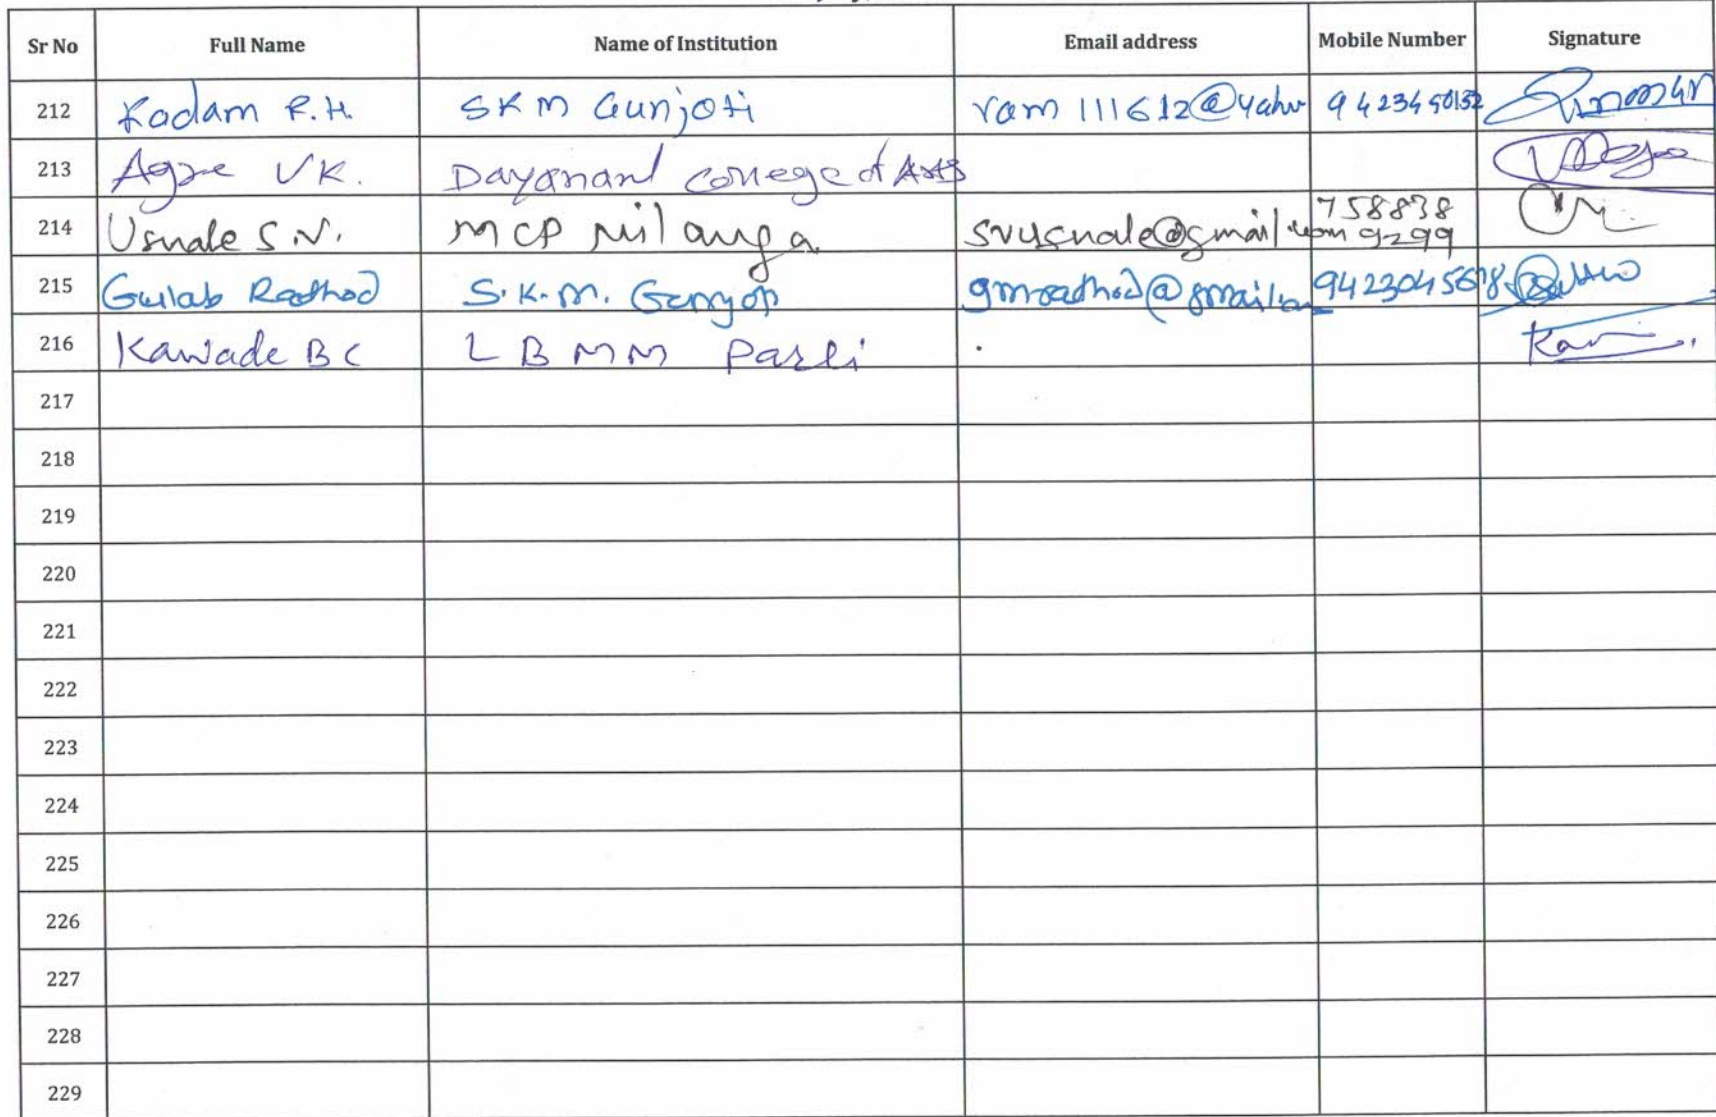 Sr No Full Name Name of Institution Email address Mobile Number Signature
212 Kadam R.H. SKM Gunjoti ram111612@yahoo 9423450132
213 Agre V.K. Dayanand College of Arts
214 Usnale S.V. MCP Nilanga svusnale@gmail.com 758838
9299
215 Gulab Rathod S.K.M. Gunjoti gmrathod@gmail.com
216 Kawade BC LBMM Parli
217
218
219
220
221
222
223
224
225
226
227
228
229